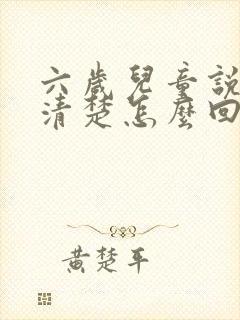 六歲兒童說
清楚怎麼回
黃楚平